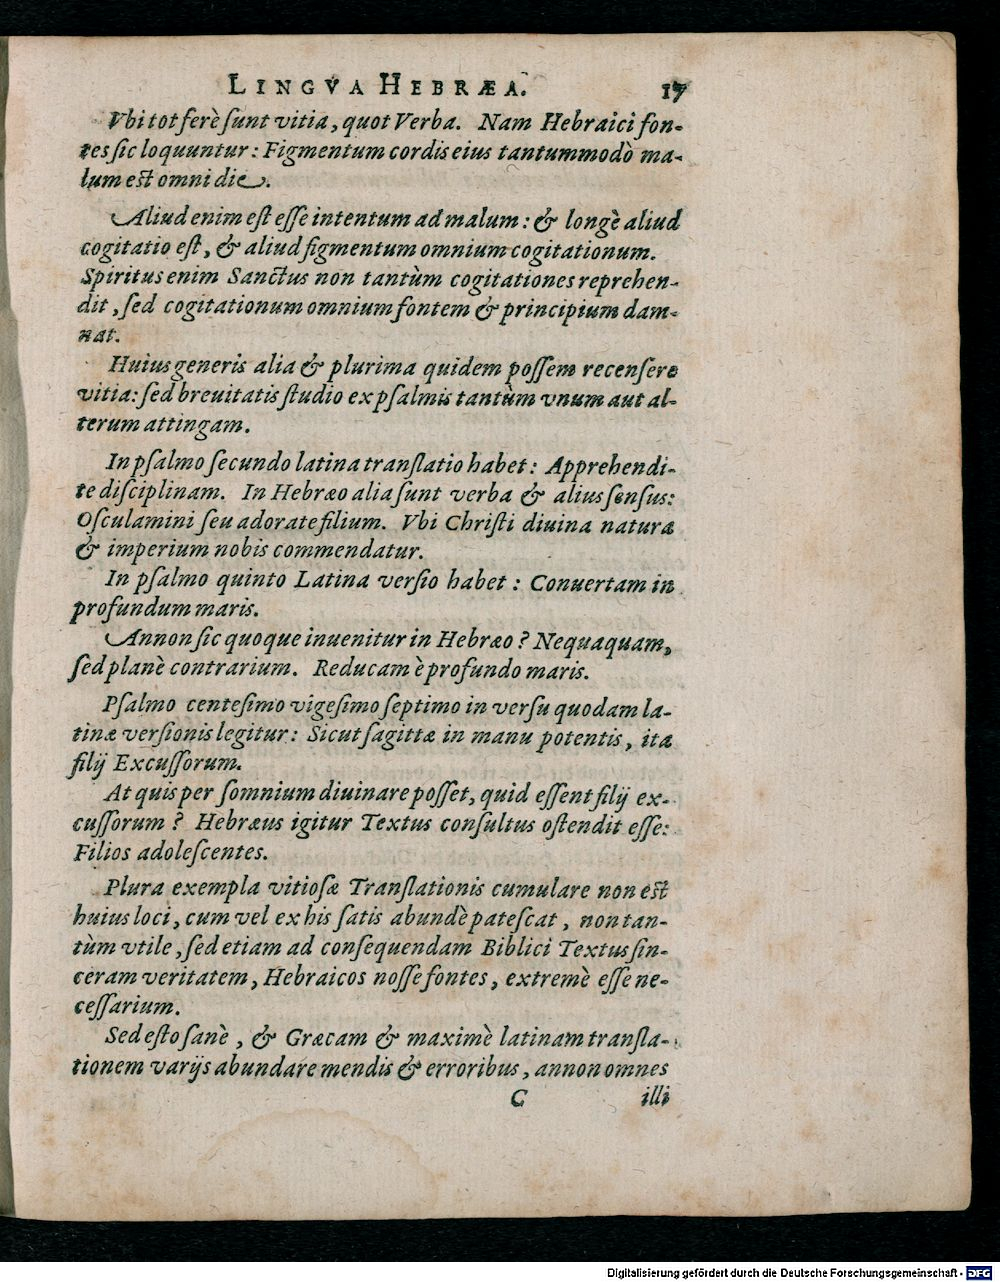 LINGVA HEBRÆA. 17
Vbi tot ferè ſunt vitia, quot Verba. Nam Hebraici fon-
tes ſic loquuntur: Figmentum cordis eius tantummodò ma-
lum est omni die.
Aliud enim eſt eſſe intentum ad malum: & longè aliud
cogitatio eſt, & aliud figmentum omnium cogitationum.
Spiritus enim Sanctus non tantùm cogitationes reprehen-
dit, ſed cogitationum omnium fontem & principium dam-
nat.
Huius generis alia & plurima quidem poſſem recenſere
vitia: ſed breuitatis ſtudio ex pſalmis tantùm vnum aut al-
terum attingam.
In pſalmo ſecundo latina tranſlatio habet: Apprehendi-
te diſciplinam. In Hebræo alia ſunt verba & alius ſenſus:
Oſculamini ſeu adorate filium. Vbi Chriſti diuina natura
& imperium nobis commendatur.
In pſalmo quinto Latina verſio habet: Conuertam in
profundum maris.
Annon ſic quoque inuenitur in Hebræo? Nequaquam,
ſed planè contrarium. Reducam è profundo maris.
Pſalmo centeſimo vigeſimo ſeptimo in verſu quodam la-
tinæ verſionis legitur: Sicut ſagittæ in manu potentis, ita
filij Excuſſorum.
At quis per ſomnium diuinare poſſet, quid eſſent filij ex-
cuſſorum? Hebræus igitur Textus conſultus oſtendit eſſe:
Filios adoleſcentes.
Plura exempla vitioſæ Tranſlationis cumulare non est
huius loci, cum vel ex his ſatis abundè pateſcat, non tan-
tùm vtile, ſed etiam ad conſequendam Biblici Textus ſin-
ceram veritatem, Hebraicos noſſe fontes, extremè eſſe ne-
ceſſarium.
Sed eſto ſanè, & Græcam & maximè latinam tranſla-
tionem varijs abundare mendis & erroribus, annon omnes
C illi
Digitalisierung gefördert durch die Deutsche Forschungsgemeinschaft - DFG